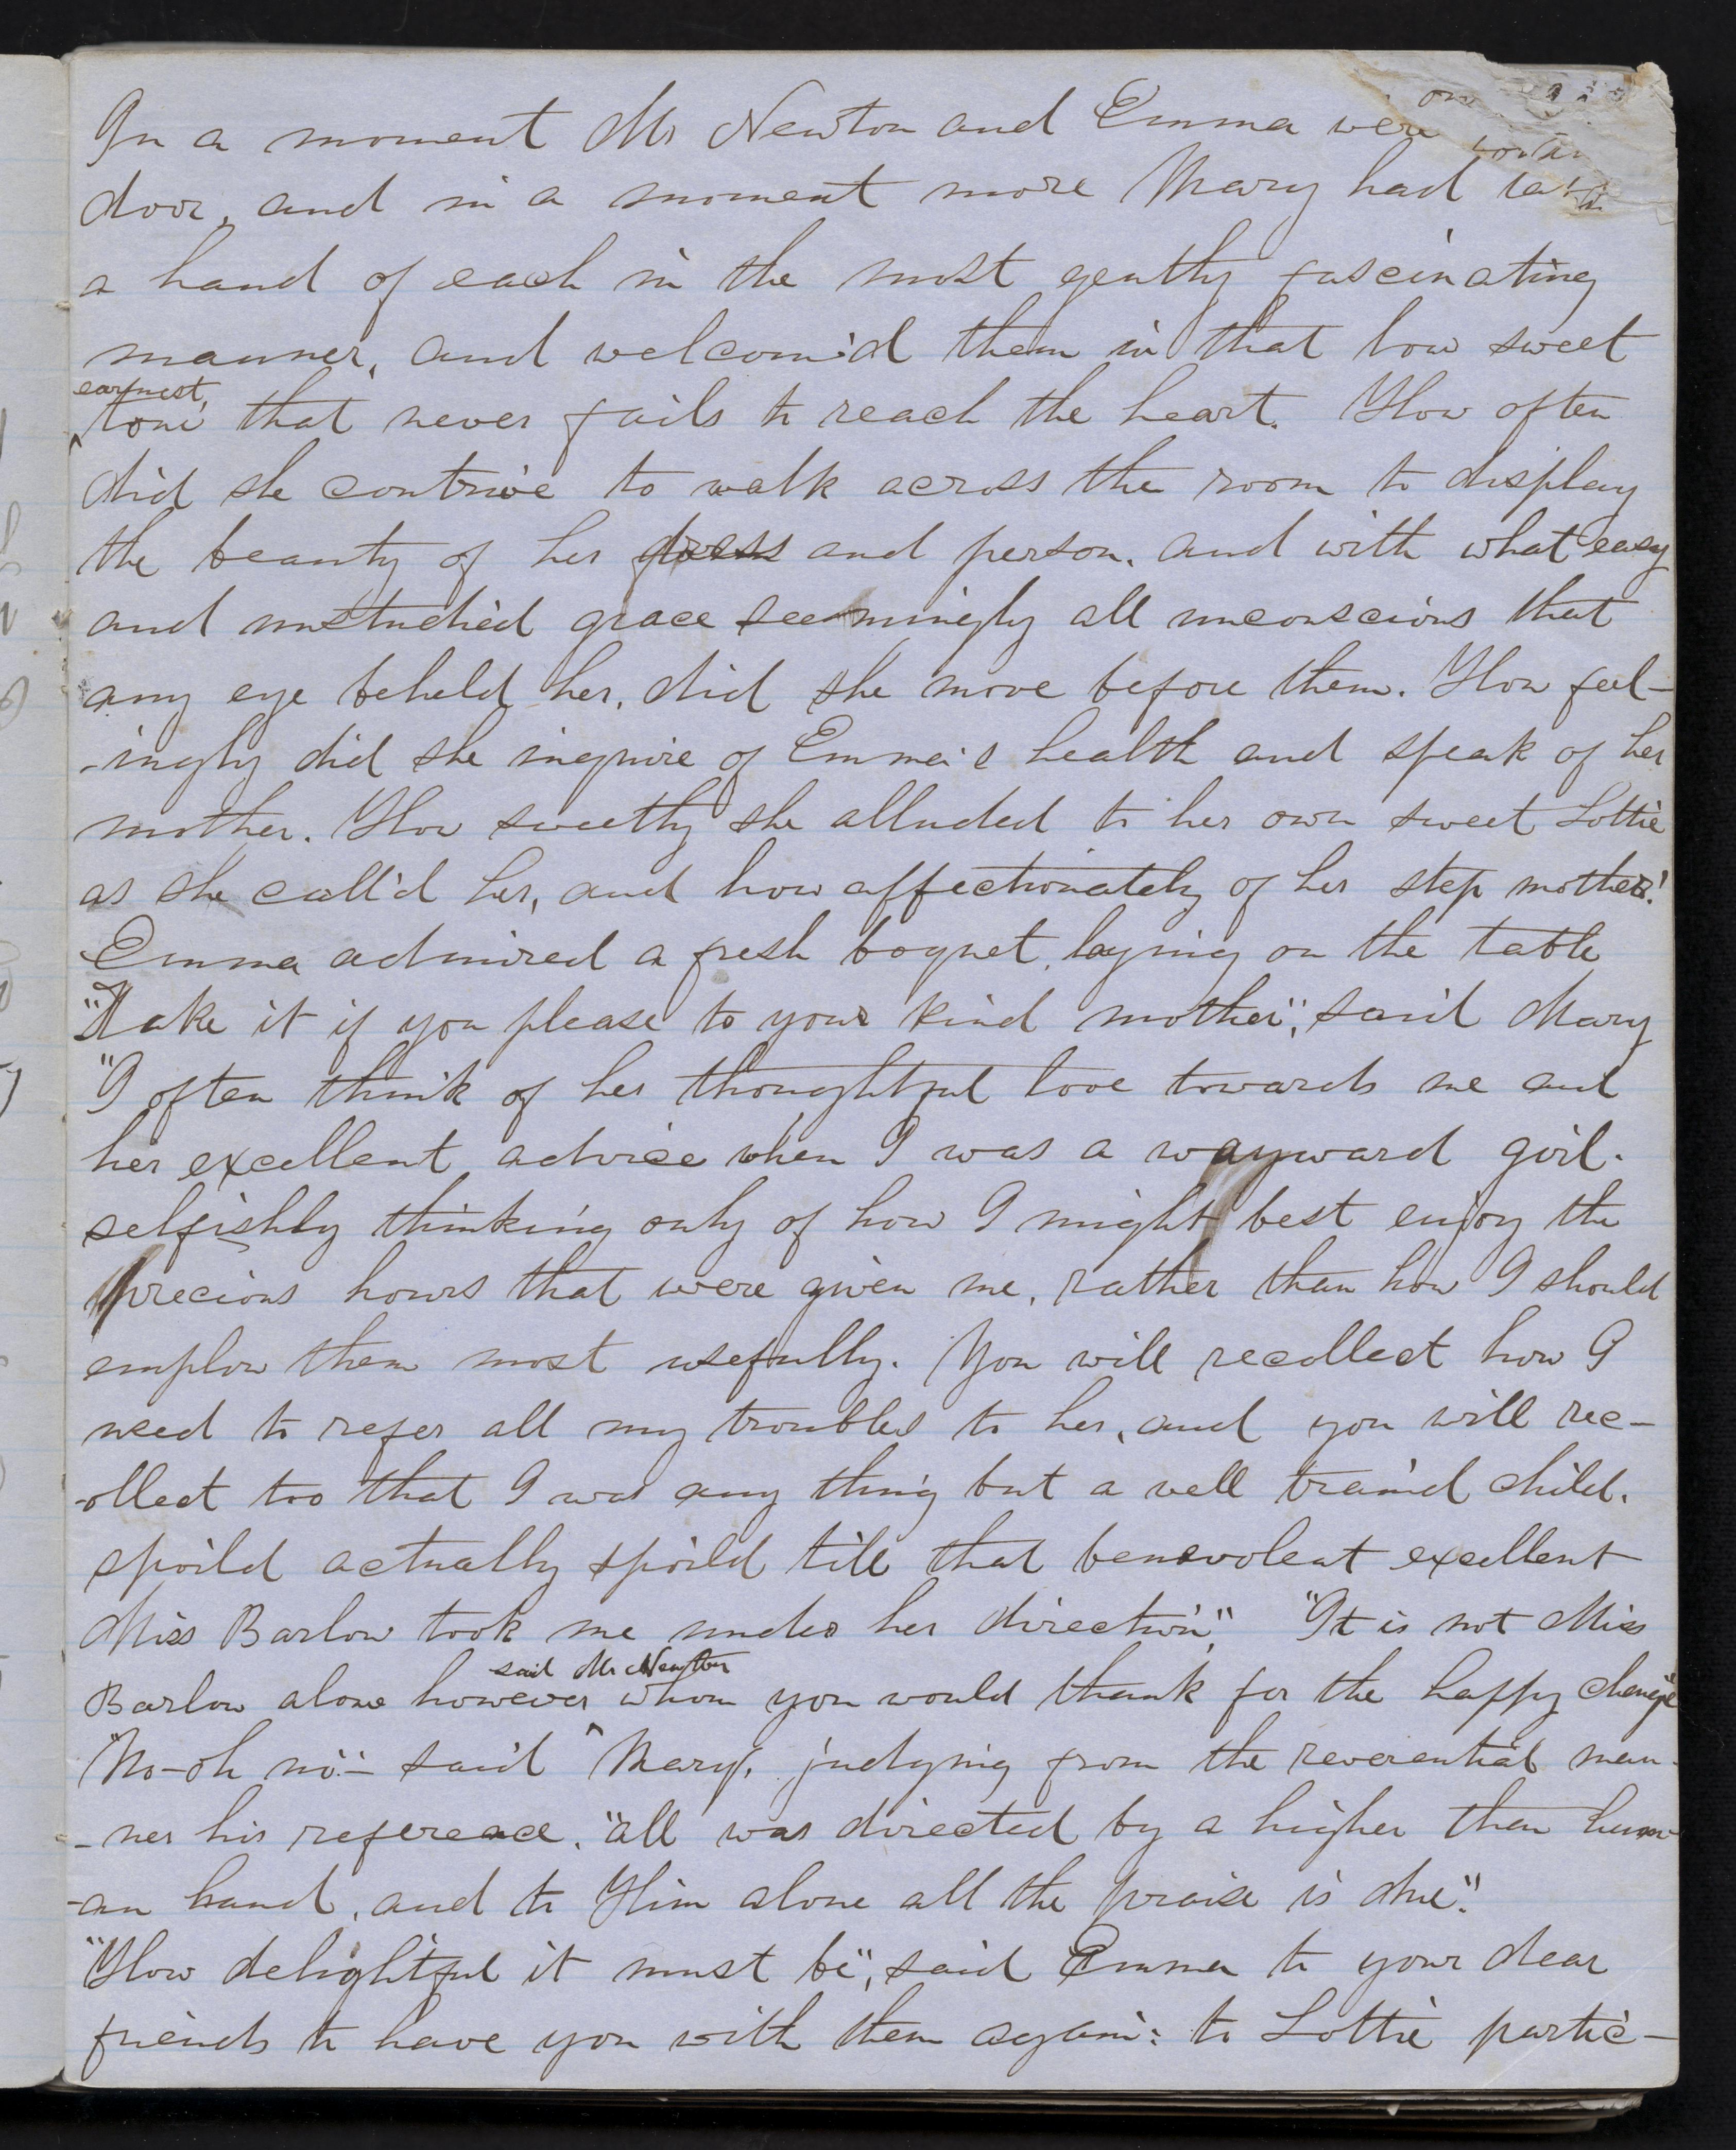 In a moment Mr Newton and Emma were
door, and in a moment more Mary had
a hand of each in the most gently fascinating
manner, and welcom'd them in that low sweet
earnest,
tone that never fails to reach the heart. How often
did she contrive to walk across the room to display
the beauty of her dress and person, and with what easy
and unstudied grace seemingly all unconscious that
any eye beheld her, did she move before them. How feel-
-ingly did she inquire of Emma's health and speak of her
mother. How sweetly she alluded to her own sweet Lottie
as she call'd her, and how affectionately of her step mother!
Emma admired a fresh boquet, laying on the table
"Take it if you please to your kind mother", said Mary
"I often think of her thoughtful love towards me and
her excellent advice when I was a wayward girl.
selfishly thinking only of how I might best enjoy the
precious hours that were given me, rather than how I should
employ them most usefully. You will recollect how I
used to refer all my troubles to her, and you will rec-
-ollect too that I was any thing but a well train'd child.
spoild actually spoild till that benevolent excellent
Miss Barlow took me under her direction". "It is not Miss
said Mr Newton
Barlow alone however ^ whom you would thank for the happy change"
"No-oh no"- said Mary, judging from the reverential man-
-ner his reference. "all was directed by a higher than hum-
-an hand, and to Him alone all the praise is due".
"How delightful it must be", said Emma to your dear
friends to have you with them again: to Lottie partic-